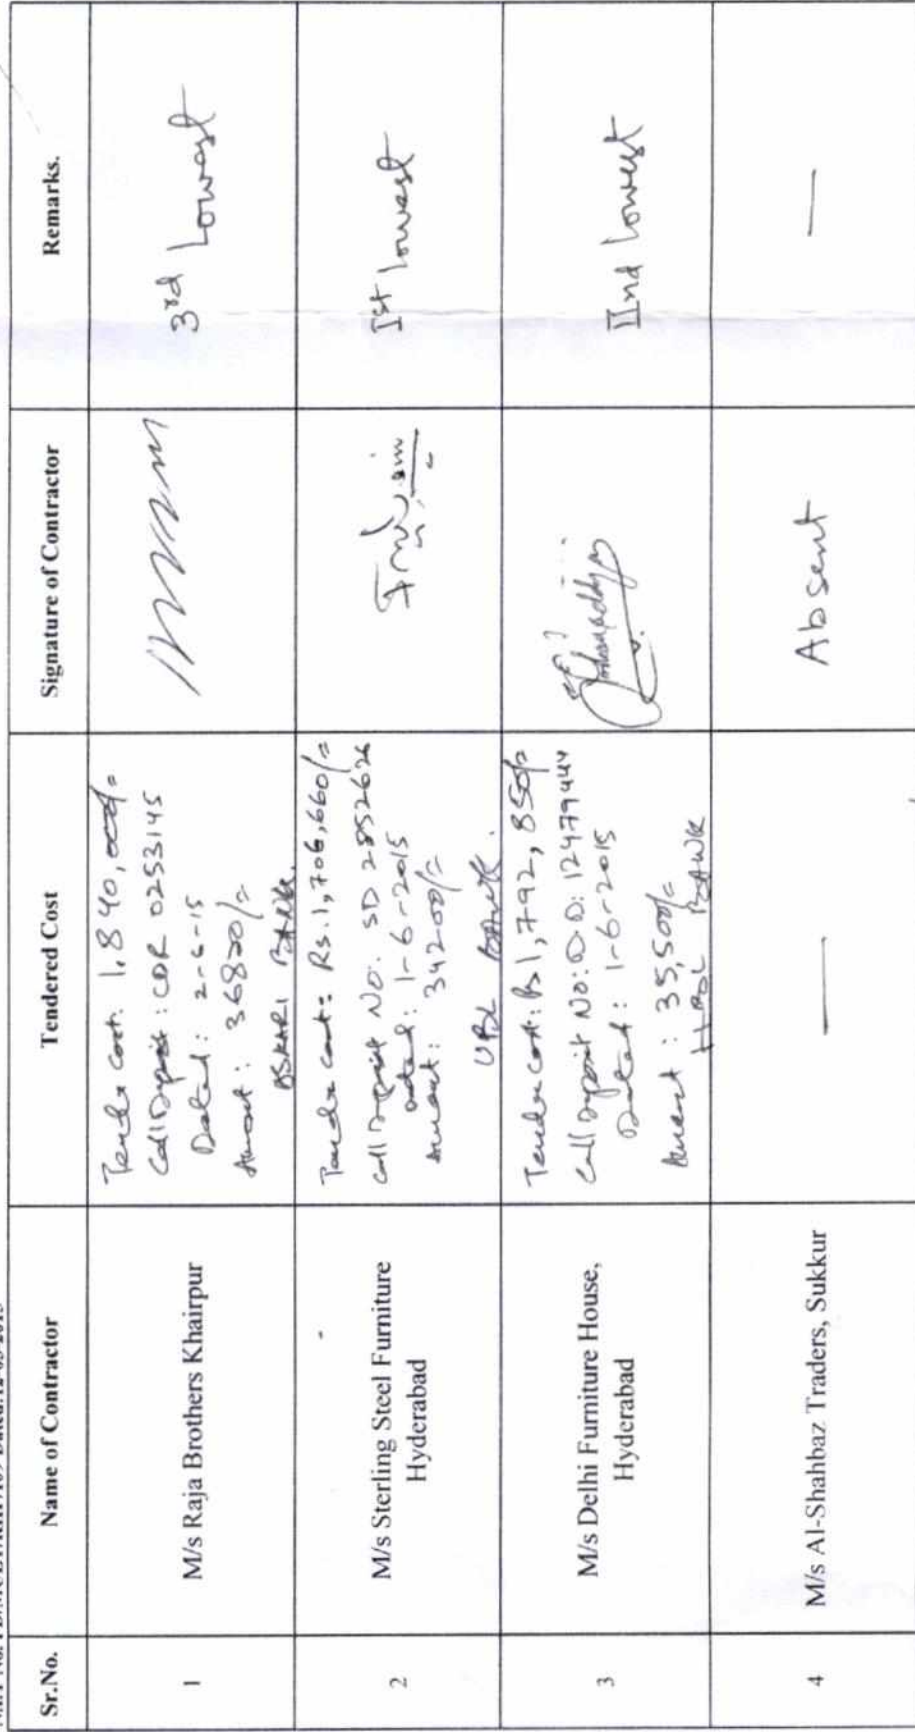 Sr.No.
Name of Contractor
Tendered Cost
Signature of Contractor
Remarks.
1
M/s Raja Brothers Khairpur
Tender Cost: 1,840,000/=
Call Deposit: CDR 0253145
Dated: 2-6-15
Amount: 36820/=
BANK.
3rd Lowest
2
M/s Sterling Steel Furniture
Hyderabad
Tender Cost: Rs.1,706,660/=
Call Deposit No: SD 2852626
Dated: 1-6-2015
Amount: 34200/=
UBL BANK.
Ist lowest
3
M/s Delhi Furniture House,
Hyderabad
Tender Cost: Rs1,792,850/=
Call Deposit No: D.D: 12479444
Dated: 1-6-2015
Amount: 35,500/=
HBL BANK
IInd lowest
4
M/s Al-Shahbaz Traders, Sukkur
—
Absent
—